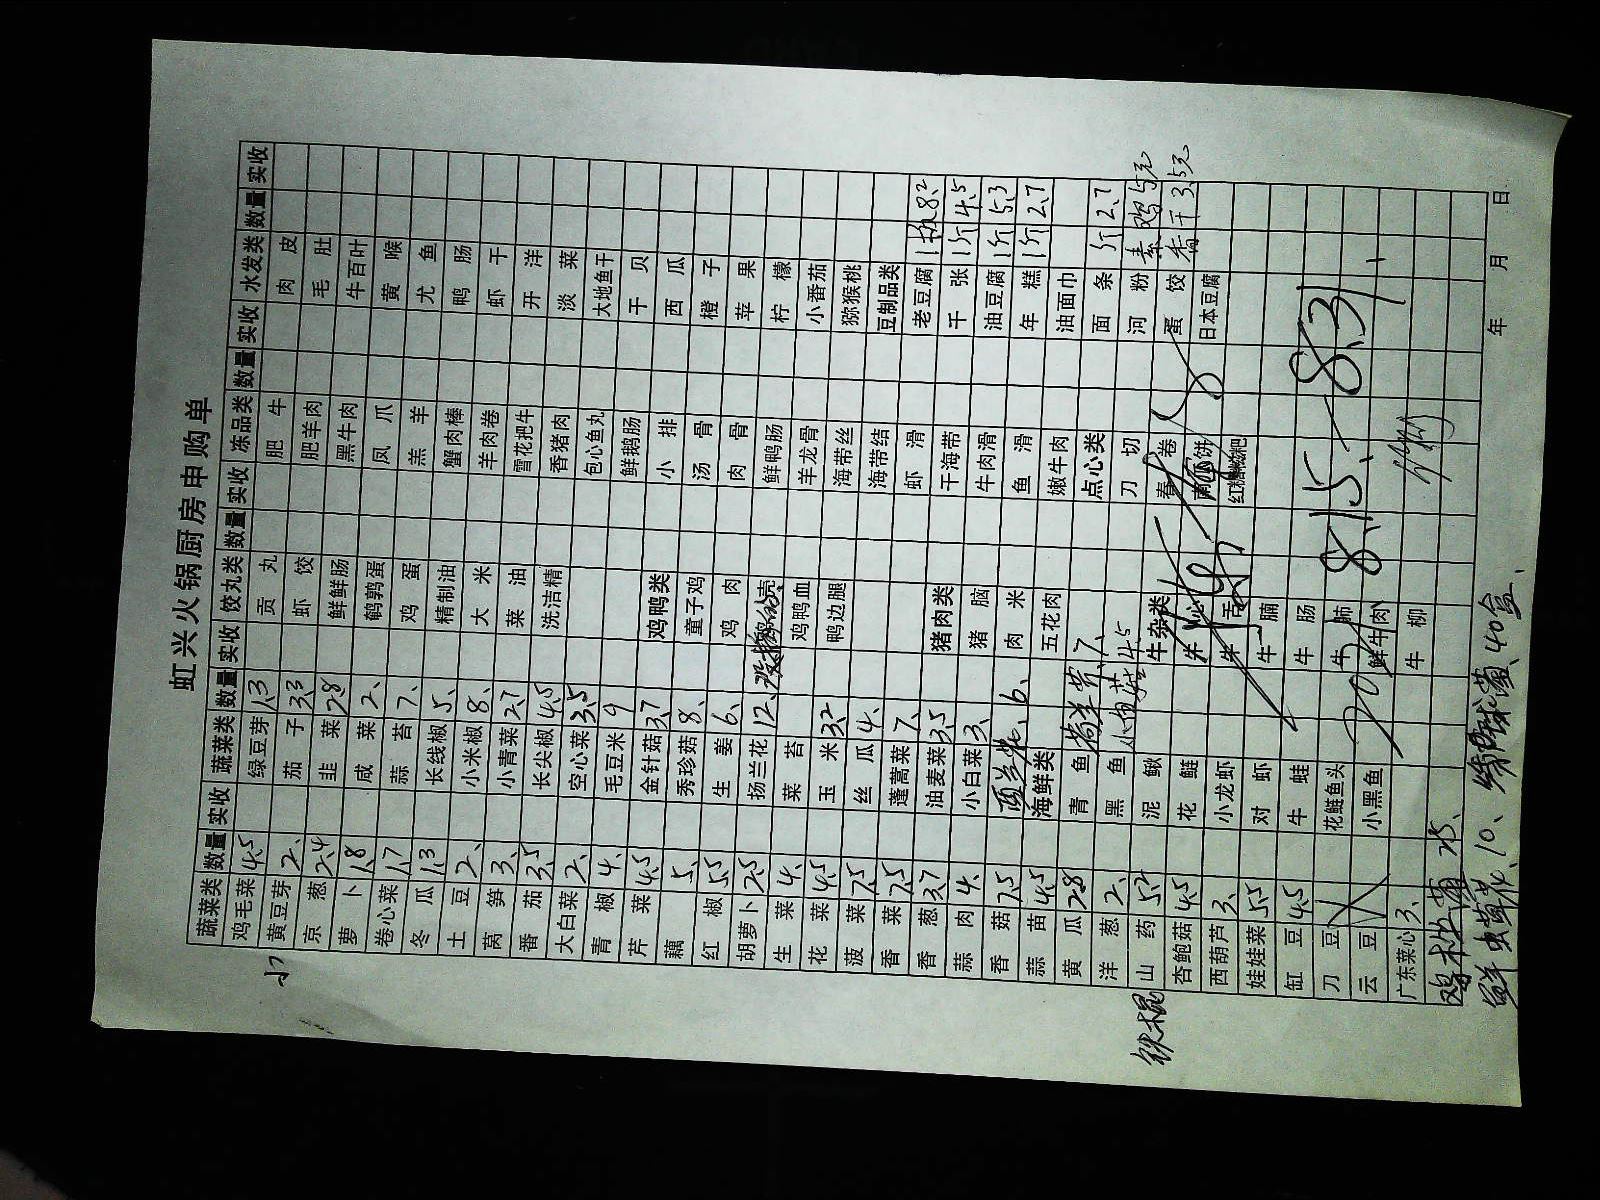 虹兴火锅厨房申购单
蔬菜类 数量 实收 蔬菜类 数量 实收 饺丸类 数量 实收 冻品类 数量 实收 水发类 数量 实收
小 鸡毛菜 4.5 绿豆芽 1.3 贡丸 肥牛 肉皮
黄豆芽 2、 茄子 3.3 虾饺 肥羊肉 毛肚
京葱 2.4 韭菜 2.8 鲜鲜肠 黑牛肉 牛百叶
萝卜 1.8 咸菜 2、 鹌鹑蛋 凤爪 黄喉
卷心菜 1.7 蒜苔 7、 鸡蛋 羔羊 尤鱼
冬瓜 1.3 长线椒 5、 精制油 蟹肉棒 鸭肠
土豆 2、 小米椒 8、 大米 羊肉卷 虾干
莴笋 3、 小青菜 2.7 菜油 雪花把牛 开洋
番茄 3.5 长尖椒 4.5 洗洁精 香猪肉 淡菜
大白菜 2、 空心菜 3.5 包心鱼丸 大地鱼干
青椒 4、 毛豆米 9 鲜鹅肠 干贝
芹菜 4.5 金针菇 3.7 鸡鸭类 小排 西瓜
藕 5、 秀珍菇 8、 童子鸡 汤骨 橙子
红椒 5.5 生姜 6、 鸡肉 肉骨 苹果
胡萝卜 2.5 扬兰花 12、 鲜鸭肠 柠檬
生菜 4、 菜苔 鸡鸭血 羊龙骨 小番茄
花菜 4.5 玉米 3.2 鸭边腿 海带丝 猕猴桃
菠菜 7.5 丝瓜 4、 海带结 豆制品类
香菜 7.5 蓬蒿菜 7、 虾滑 老豆腐 1板 8.2
香葱 3.7 油麦菜 3.5 猪肉类 干海带 千张 1斤 4.5
蒜肉 4、 小白菜 3、 猪脑 牛肉滑 油豆腐 1斤 5.3
香菇 7.5 西兰花 6、 肉米 鱼滑 年糕 1斤 2.7
蒜苗 4.5 海鲜类 五花肉 嫩牛肉 油面巾
黄瓜 2.8 青鱼 7、 点心类 面条 1斤 2.7
洋葱 2、 黑鱼 4.5 刀切 河粉 素鸡 5元
铁棍 山药 5.2 泥鳅 牛杂类 春卷 蛋饺 香干 3.5元
杏鲍菇 4.5 花鲢 牛心 南瓜饼 日本豆腐
西葫芦 3、 小龙虾 牛舌 红糖糍粑
娃娃菜 5.5 对虾 牛腩
缸豆 4.5 牛蛙 牛肠
刀豆 花鲢鱼头 牛肺 8.15、-8.31、
云豆 小黑鱼 鲜牛肉
广东菜心 3、 牛柳
25、
鲜虫草花、10、 40盒、
年 月 日